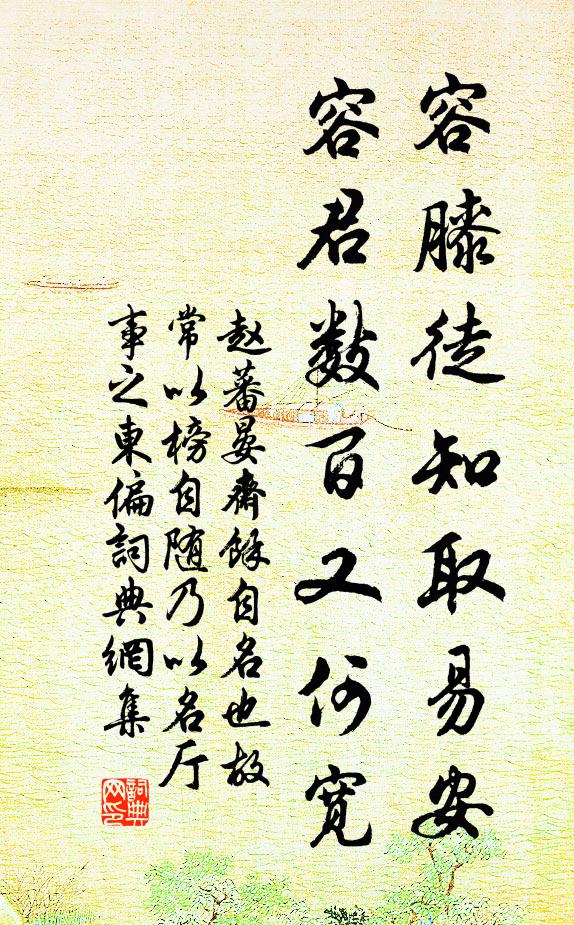 容膝徒知取易安
容君数百又何寛
赵蕃晏斋馀自名也故
常以榜自随乃以名厅
事之東偏詞典網集
詞典网印